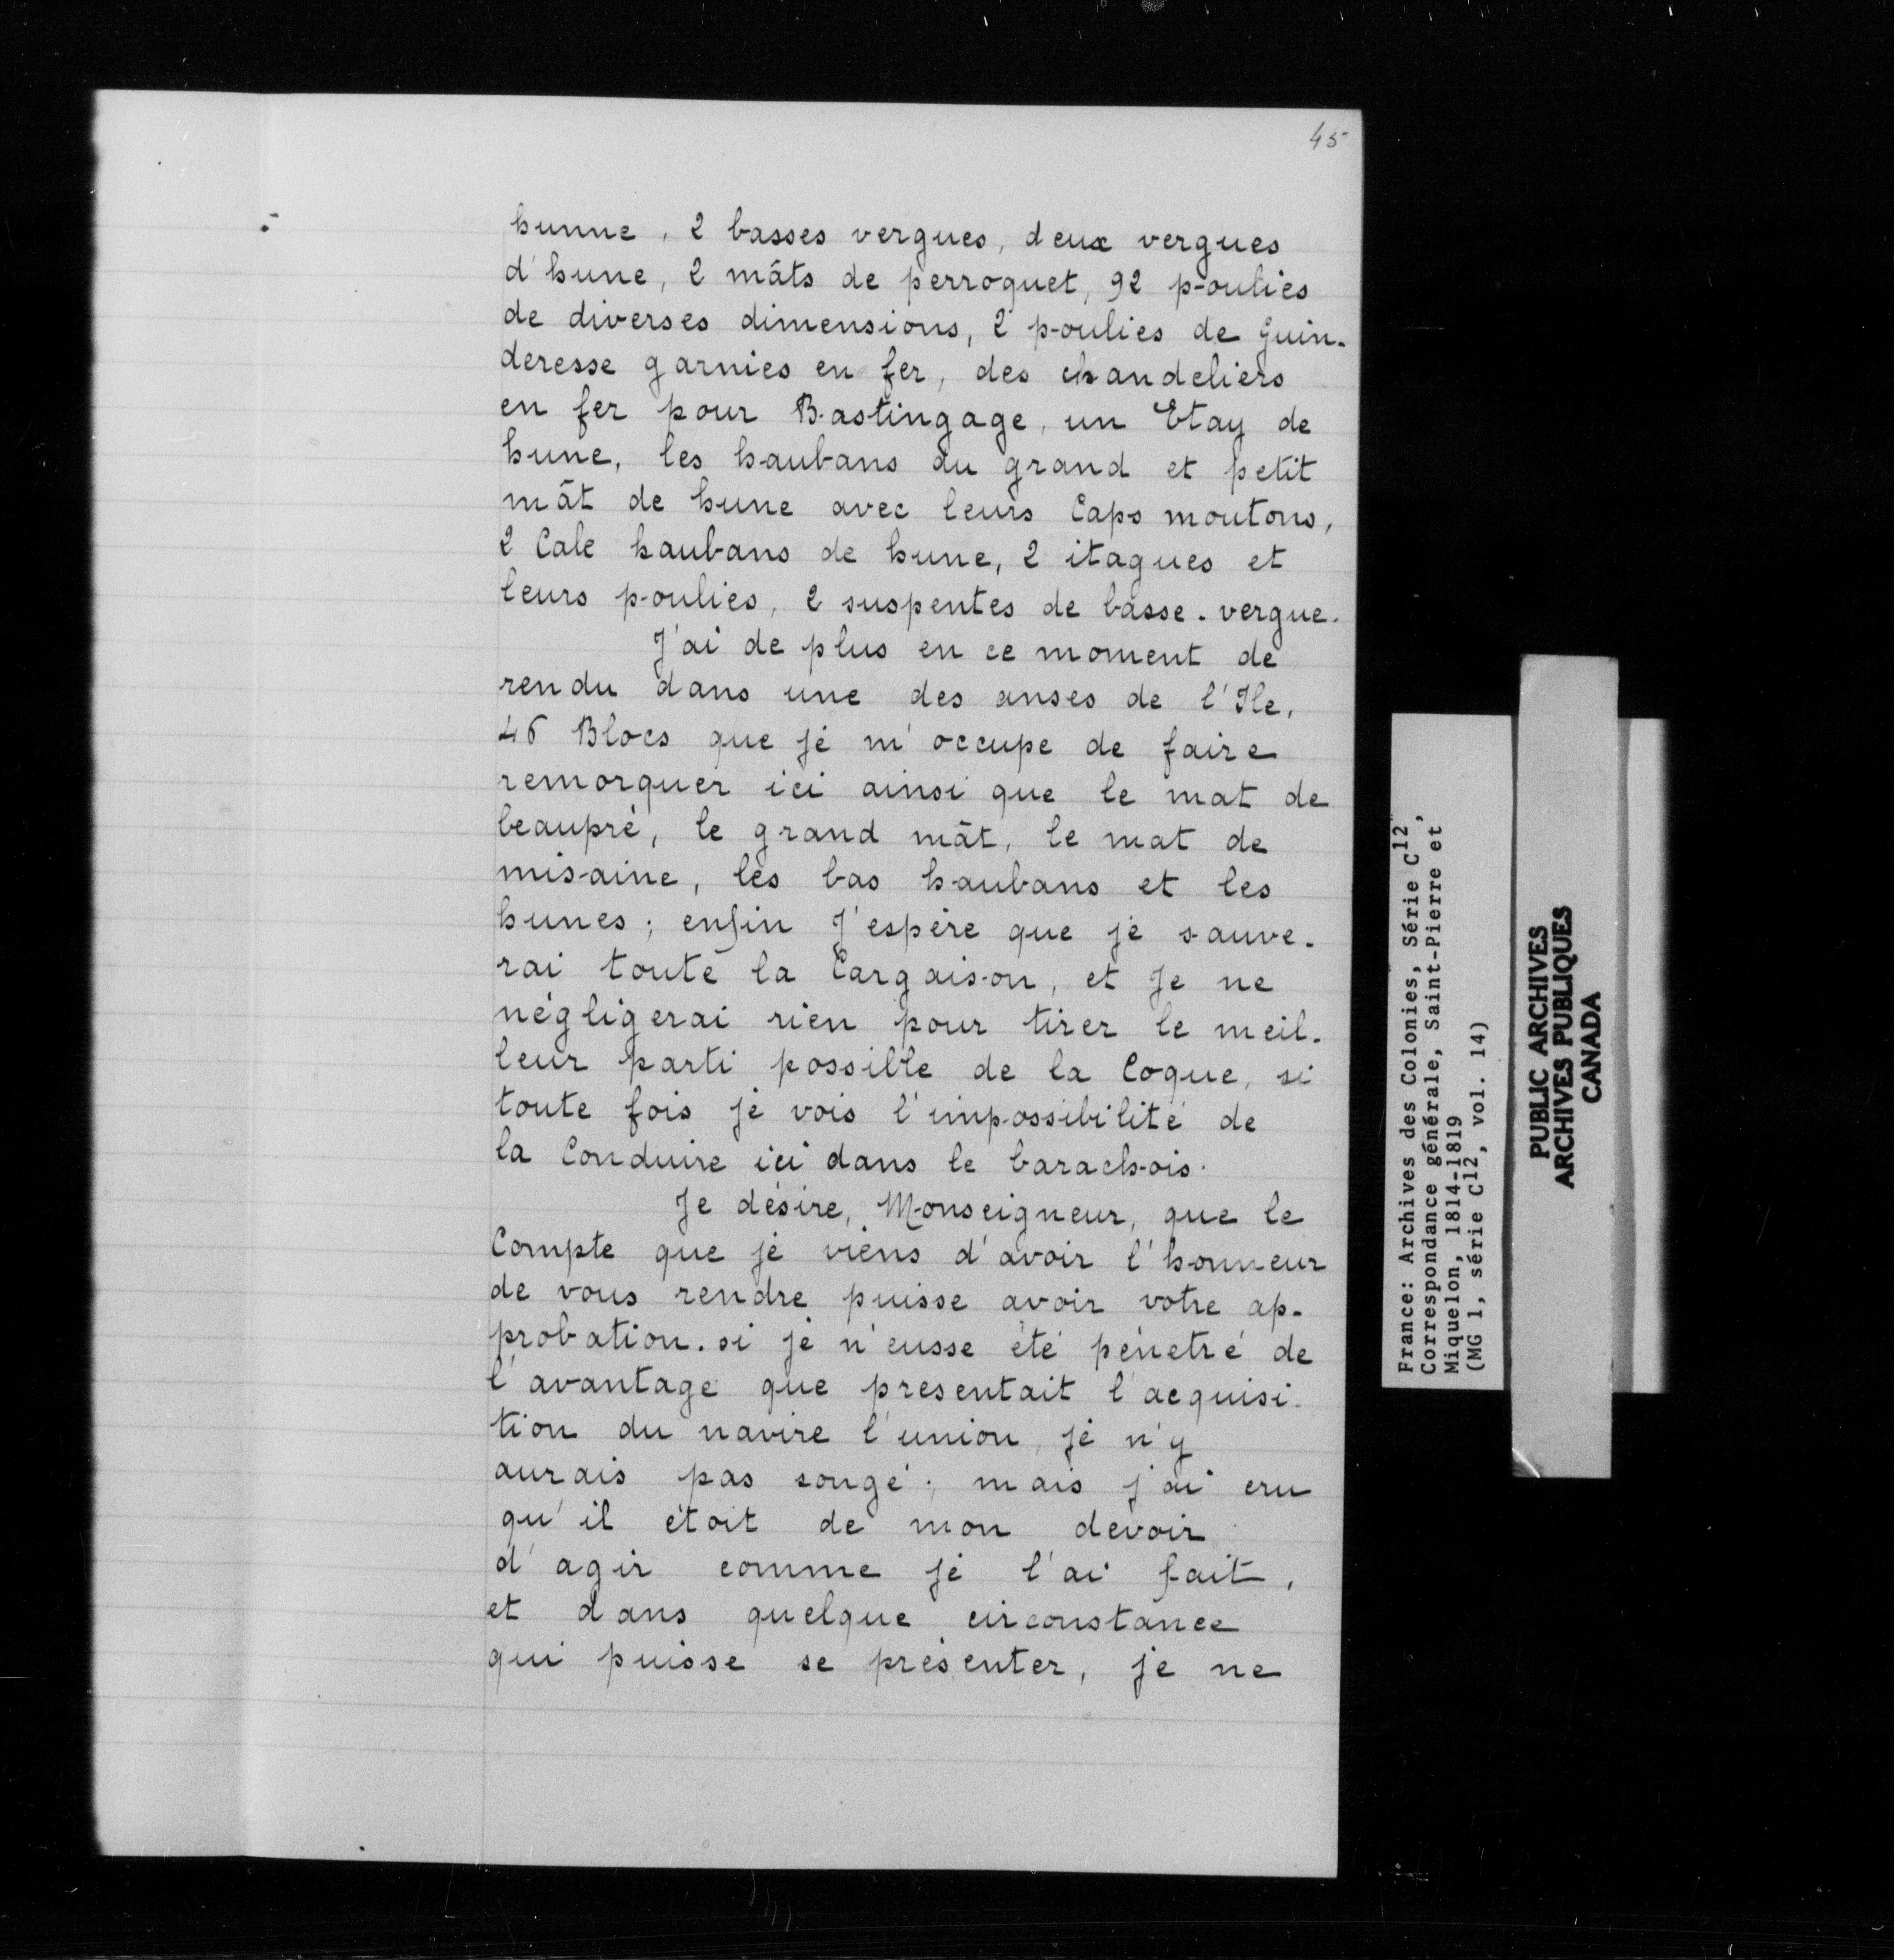 45
hunne, 2 basses vergues, deux vergues
d'hune, 2 mâts de perroquet, 92 poulies
de diverses dimensions, 2 poulies de guin-
deresse garnies en fer, des chandeliers
en fer pour Bastingage, un Etay de
hune, les haubans du grand et petit
mât de hune avec leurs Caps moutons,
2 Cale haubans de hune, 2 itagues et
leurs poulies, 2 suspentes de basse-vergue.
J'ai de plus en ce moment de
rendu dans une des anses de l'Ile,
46 Blocs que je m'occupe de faire
remorquer ici ainsi que le mat de
beaupré, le grand mât, le mat de
misaine, les bas haubans et les
hunes; enfin J'espère que je sauve-
rai toute la Cargaison, et Je ne
négligerai rien pour tirer le meil-
leur parti possible de la Coque, si
toute fois je vois l'impossibilité de
la Conduire ici dans le barachois.
Je désire, Monseigneur, que le
Compte que je viens d'avoir l'honneur
de vous rendre puisse avoir votre ap-
probation. si je n'eusse été pénétré de
l'avantage que presentait l'acquisi-
tion du navire l'union, je n'y
aurais pas songé; mais j'ai cru
qu'il étoit de mon devoir
d'agir comme je l'ai fait,
et dans quelque circonstance
qui puisse se présenter, je ne
France: Archives des Colonies, Série C12,
Correspondance générale, Saint-Pierre et
Miquelon, 1814-1819
(MG 1, série C12, vol. 14)
PUBLIC ARCHIVES
ARCHIVES PUBLIQUES
CANADA